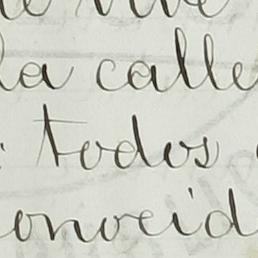 la calle
todos
onocid